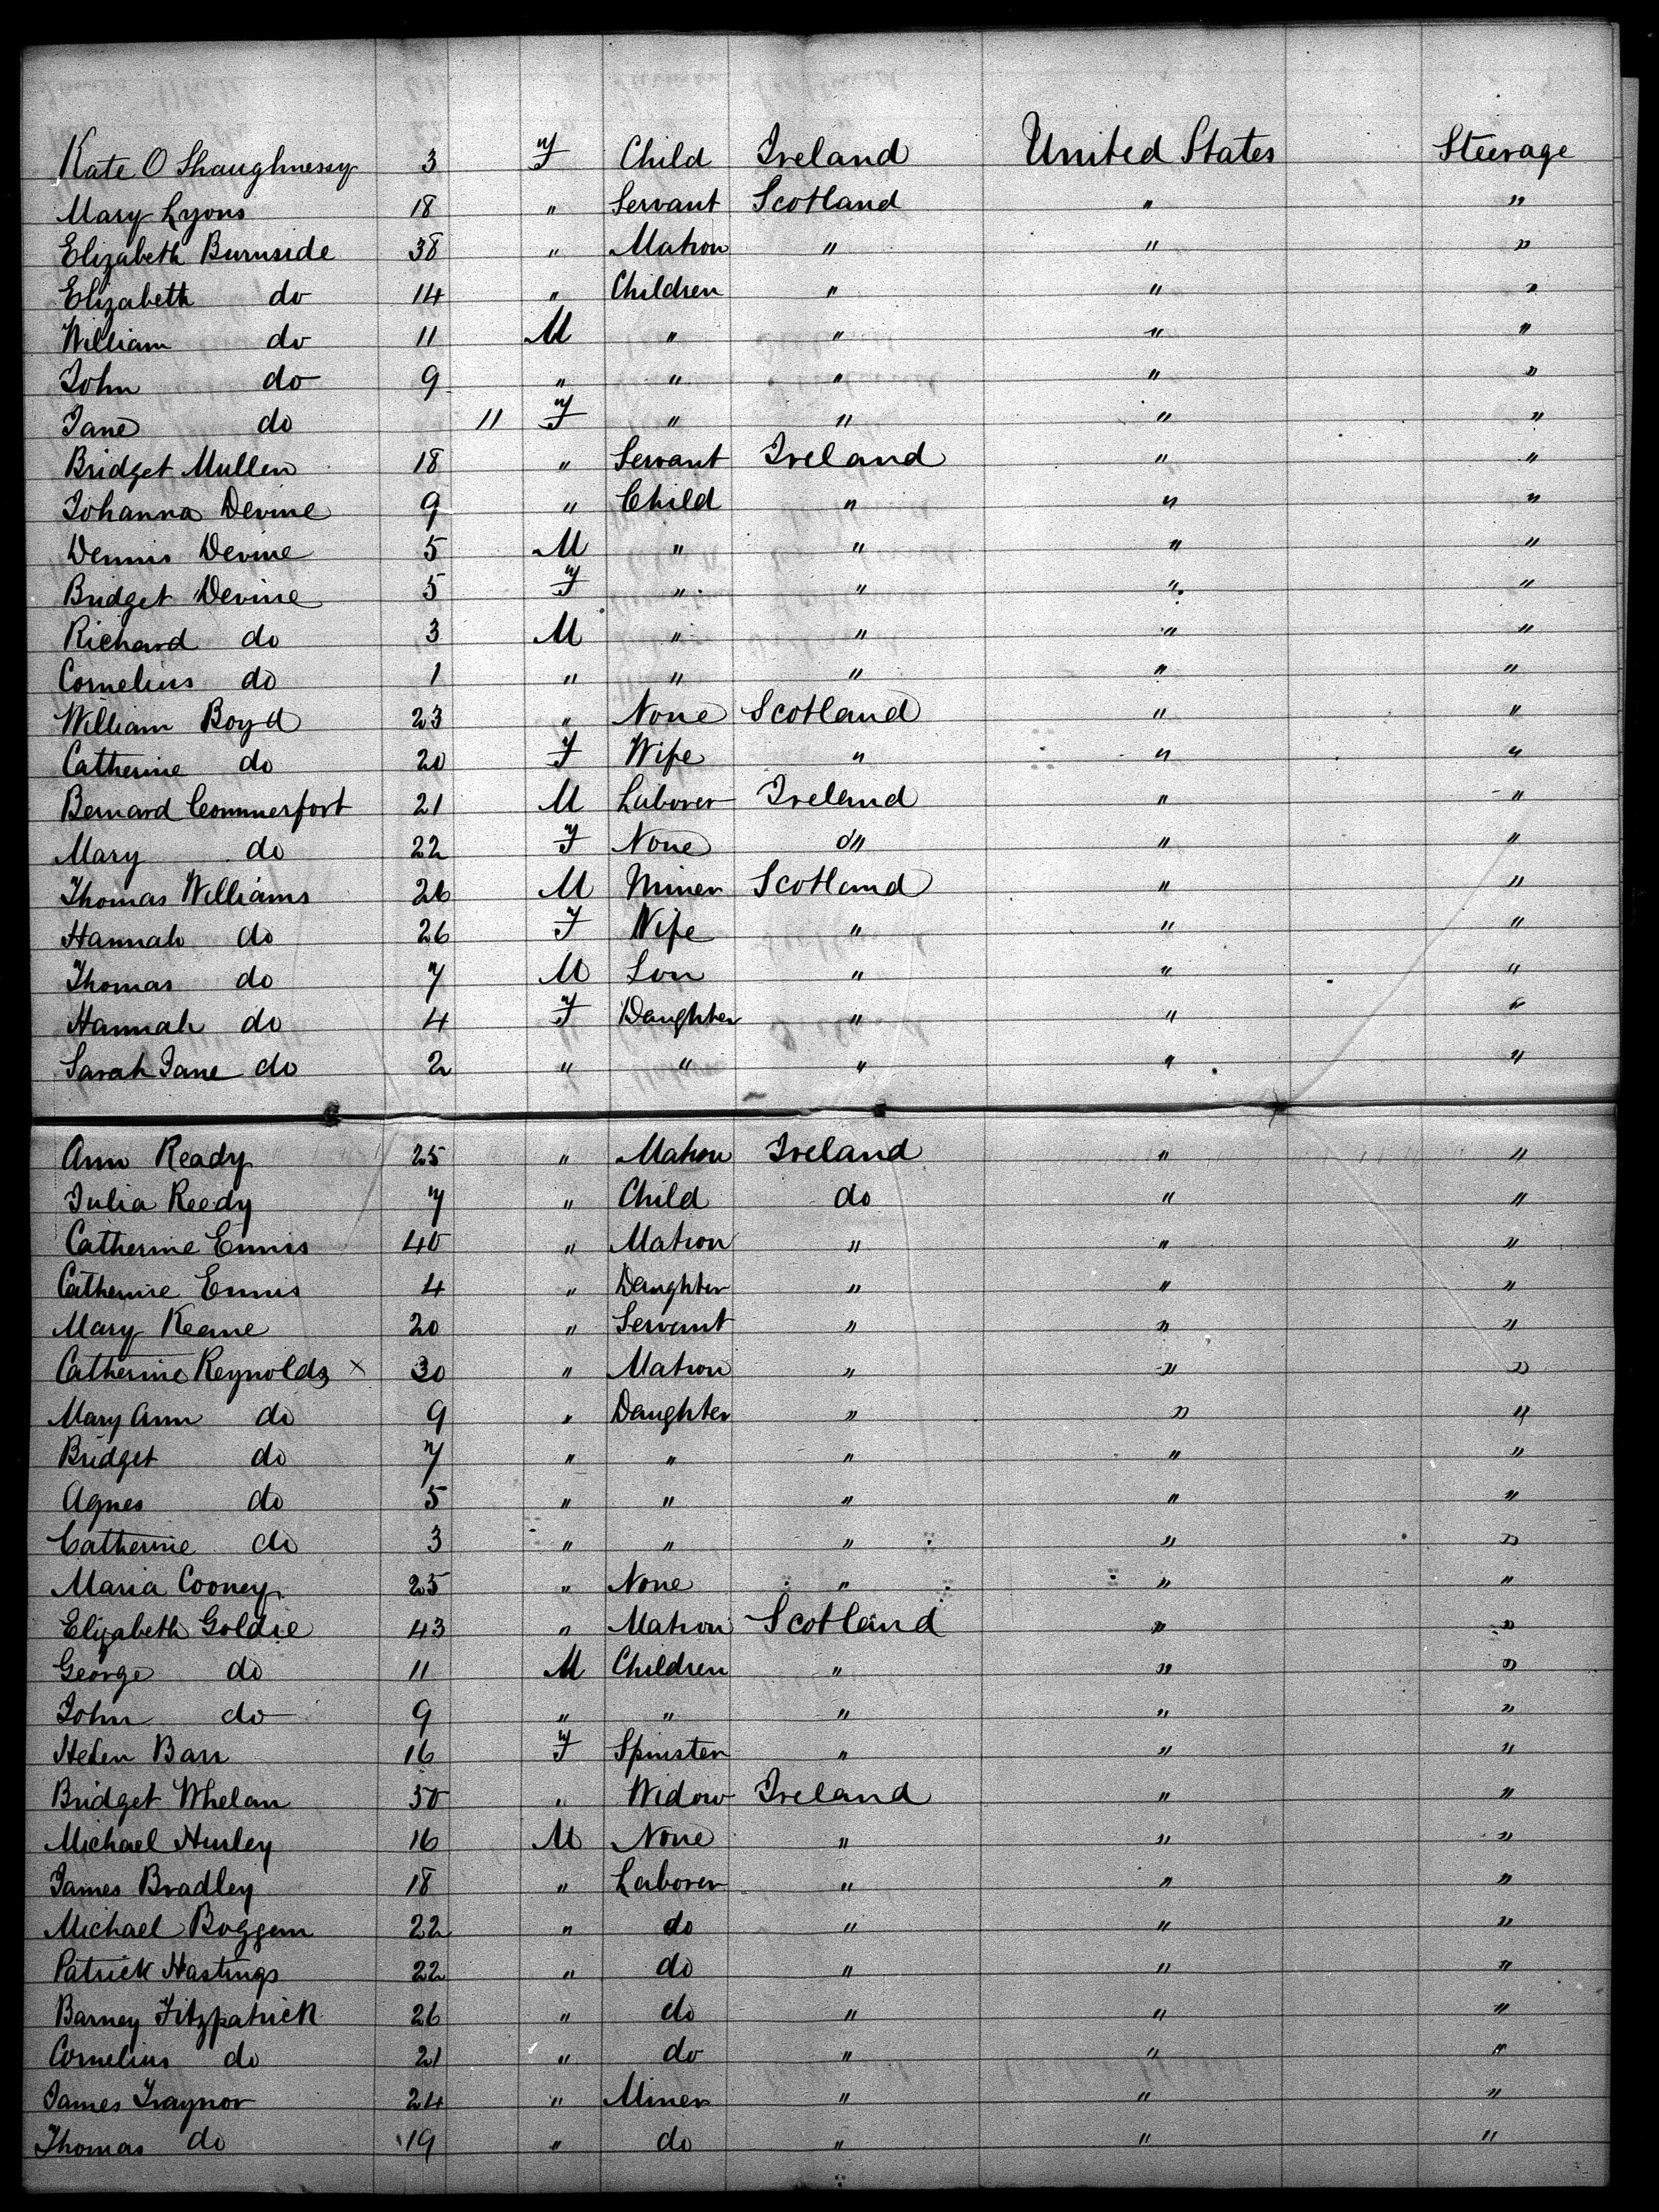 Kate O Shaughnessy 3 F Child Ireland United States Steerage
Mary Lyons 18 " Servant Scotland " "
Elizabeth Burnside 38 " Matron " " "
Elizabeth do 14 " Children " " "
William do 11 M " " " "
John do 9 " " " " "
Jane do 11 F " " " "
Bridget Mullen 18 " Servant Ireland " "
Johanna Devine 9 " Child " " "
Dennis Devine 5 M " " " "
Bridget Devine 5 F " " " "
Richard do 3 M " " " "
Cornelius do 1 " " " " "
William Boyd 23 " None Scotland " "
Catherine do 20 F Wife " " "
Bernard Commerfort 21 M Laborer Ireland " "
Mary do 22 F None " " "
Thomas Williams 26 M Miner Scotland " "
Hannah do 26 F Wife " " "
Thomas do 7 M Son " " "
Hannah do 4 F Daughter " " "
Sarah Jane do 2 " " " " "
Ann Ready 25 " Matron Ireland " "
Julia Reedy 7 " Child do " "
Catherine Ennis 40 " Matron " " "
Catherine Ennis 4 " Daughter " " "
Mary Keane 20 " Servant " " "
Catherine Reynolds x 30 " Matron " " "
Mary Ann do 9 " Daughter " " "
Bridget do 7 " " " " "
Agnes do 5 " " " " "
Catherine do 3 " " " " "
Maria Cooney 25 " None " " "
Elizabeth Goldie 43 " Matron Scotland " "
George do 11 M Children " " "
John do 9 " " " " "
Helen Barr 16 F Spinster " " "
Bridget Whelan 50 " Widow Ireland " "
Michael Hurley 16 M None " " "
James Bradley 18 " Laborer " " "
Michael 22 " do " " "
Patrick Hastings 22 " do " " "
Barney Fitzpatrick 26 " do " " "
Cornelius do 21 " do " " "
James Traynor 24 " Miner " " "
Thomas do 19 " do " " "